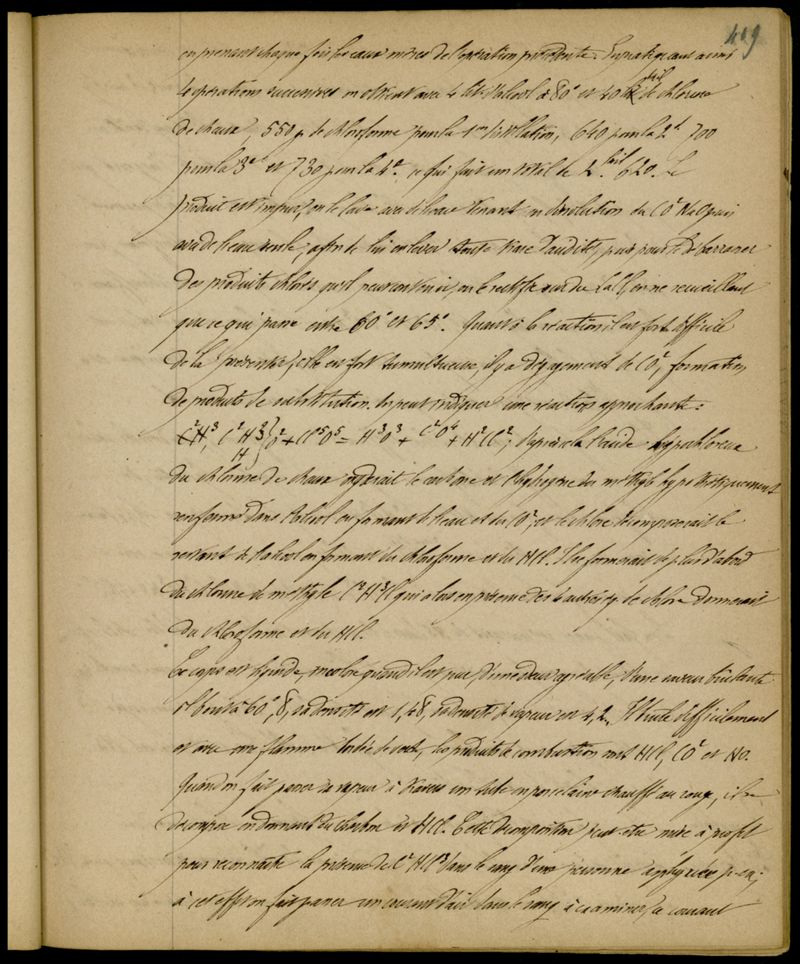 419
en prenant chaque fois les eaux mères de l'opération précédente. En pratiquant ainsi
4 opérations successives on obtient avec 4 lit d'alcool à 80° et 40 kil de chlorure
de chaux, 550 g. de chloroforme pour la 1re distillation, 640 pour la 2e 700
pour la 3e et 730 pour la 4e. ce qui fait un total de 2 kil. 620. Le
produit est impur, on le lave avec de l'eau tenant en dissolution du CO² NaO puis
avec de l'eau seule, afin de lui enlever toute trace d'acidité, puis pour le débarrasser
des produits chlorés qu'il peut contenir, on le rectifie sur du CaCl, on ne recueillant
que ce qui passe entre 60° et 65°. Quant à la réaction il est fort difficile
de la préciser, elle est fort tumultueuse, il y a dégagement de CO², formation
de produits de substitution. On peut indiquer une réaction approchante:
C²H³, C²H³ H } O² + ClO = H³O³ + C²O⁴ + H²Cl²; d'après cela l'acide hypochloreux
du chlorure de chaux oxyderait le carbone et l'hydrogène du méthyle
renfermé dans l'alcool en formant de l'eau et du CO², et le chlore décomposerait le
restant de l'alcool en formant du chloroforme et du HCl. Il se formerait de plus d'abord
du chlorure de méthyle C²H³Cl qui alors en présence des 4 autres éq. de chlore donnerait
du chloroforme et du HCl.
Ce corps est liquide, incolore quand il est pur, d'une odeur agréable, d'une saveur brûlante
il bout à 60°,8, sa densité est 1,48, sa densité de vapeur est 4,2. Il brûle difficilement
et avec une flamme bordée de vert, les produits de combustion sont HCl, CO² et HO.
Quand on fait passer sa vapeur à travers un tube en porcelaine chauffé au rouge, il se
décompose en donnant du charbon et HCl. Cette décomposition peut être mise à profit
pour reconnaître la présence de C²HCl³ dans le sang d'une personne asphyxiée p. ex;
à cet effet on fait passer un courant d'air dans le sang à examiner, ce courant